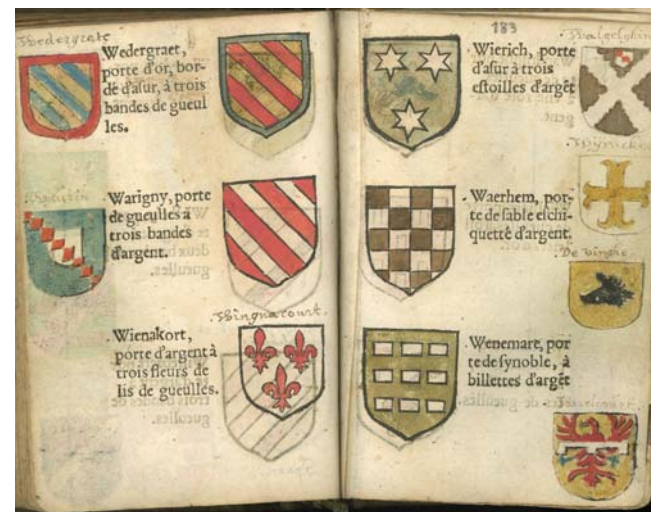 Wedergrate
Wedergraet,
porte d'or, bor-
dé d'asur, à trois
bandes de gueul
les.
Warigny, porte
de gueulles à
trois bandes
d'argent.
Wingnacourt.
Wienakort,
porte d'argent à
trois fleurs de
lis de gueulles.
183
Wierich, porte
d'asur à trois
estoilles d'argẽt
Waerhem, por-
te de sable eschi-
quetté d'argent.
De Vinghe.
Wenemare, por
te de synoble, à
billettes d'argẽt